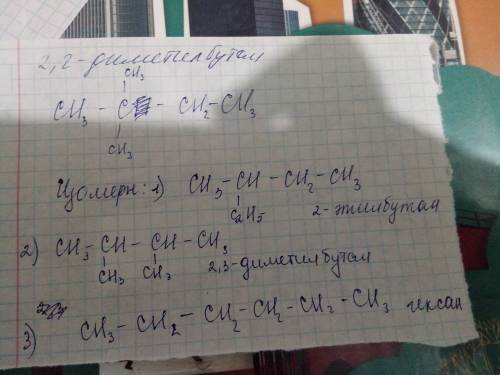 2,2-диметилбутан
CH₃
CH₃ - C - CH₂ - CH₃
CH₃
Изомеры: 1) CH₃ - CH - CH₂ - CH₃
C₂H₅
2-этилбутан
2) CH₃ - CH - CH - CH₃
CH₃ CH₃
2,3-диметилбутан
3) CH₃ - CH₂ - CH₂ - CH₂ - CH₂ - CH₃ гексан